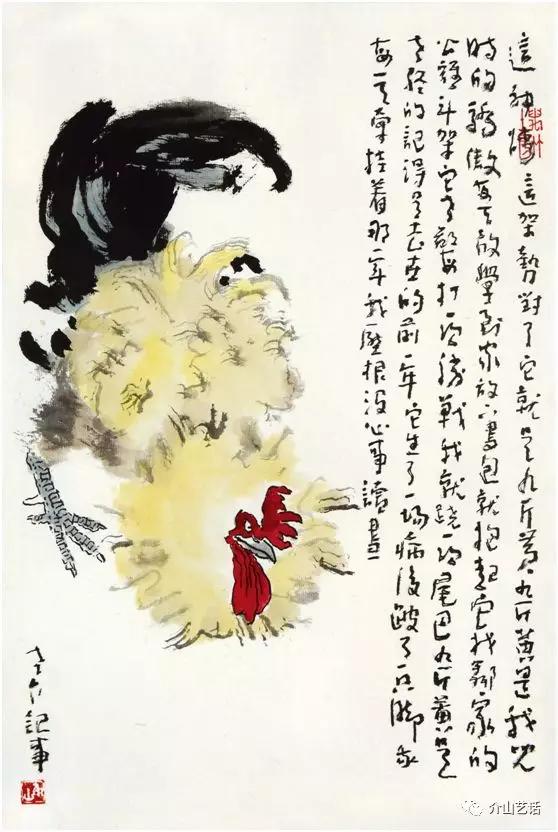 這神情這架勢對了它就是九斤黃九斤黃是我兒
時的驕傲每天放學到家放下書包就抱起它找鄰家的
公雞斗架它每打一次勝戰我就跷一次尾巴九斤黃是
老終的記得是去世的前一年它生了一場病後跛了一只脚我
每天牽挂着那一年我壓根没心事讀書
老介記事
介山艺话